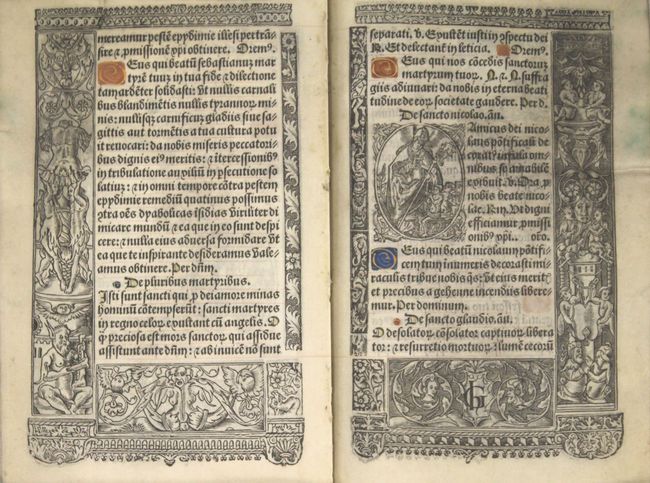 mereamur pestē epydimie illesi per trā-
sire ⁊ p̱missionē xp̄i obtinere. Oremꝰ.
Deus qui beatū sebastianum mar
tyrē tuuꝫ in tua fide ⁊ dilectione
tam ardēter solidasti: vt nullis carnali
bus blandimētis nullis tyrannoꝝ mi-
nis: nullisqꝫ carnificuꝫ gladiis siue sa-
gittis aut tormētis a tua cultura potu
it reuocari: da nobis miseris peccatori
bus dignis eiꝰ meritis: ⁊ ītercessionibꝰ
in tribulatione auxiliū in psecutione so
latiuꝫ: ⁊ in omni tempore cōtra pestem
epydimie remediū quatinus possimus
ytra oēs dyabolicas īsidias viriliter di
micare mundū ⁊ ea que in eo sunt despi
cere: ⁊ nulla eius aduersa formidare vt
ea que te inspirante desideramus vale-
amus obtinere. Per dn̄m.
De pluribus martyribus.
Isti sunt sancti qui ꝓ dei amore minas
hominū cōtempserūt: sancti martyres
in regno celoꝝ exultant cū angelis. O
q̄ preciosa est mors sanctoꝝ qui assidue
assistunt ante dn̄m: ⁊ ab inuicē nō sunt
separati. v. Exultēt iusti in cōspectu dei
R. Et delectant̄ in leticia. Oremꝰ.
Deus qui nos cōcedis sanctoruꝫ
martyrum tuoꝝ. N. ⁊ N. suffra
giis adiuuari: da nobis in eterna beati
tudine de eoꝝ societate gaudere. Per d.
De sancto nicolao. añ.
Amicus dei nico-
laus pōtificali de
coratꝰ infula om-
nibus se amabilē
exibuit. v. Ora ꝓ
nobis beate nico-
lae. R. Vt digni
efficiamur p̱miss
ionibꝰ xp̄i. oro.
Deus qui beatū nicolaum pōtifi
cem tuuꝫ inumeris decorasti mi
raculis tribue nobis q̄s: vt eius meritꝭ
et precibus a gehenne incendiis libere-
mur. Per dominum.
De sancto glaudio. añ.
O desolatoꝝ cōsolator captiuoꝝ libera
tor: ⁊ resurrectio mortuoꝝ: lumē cecorū